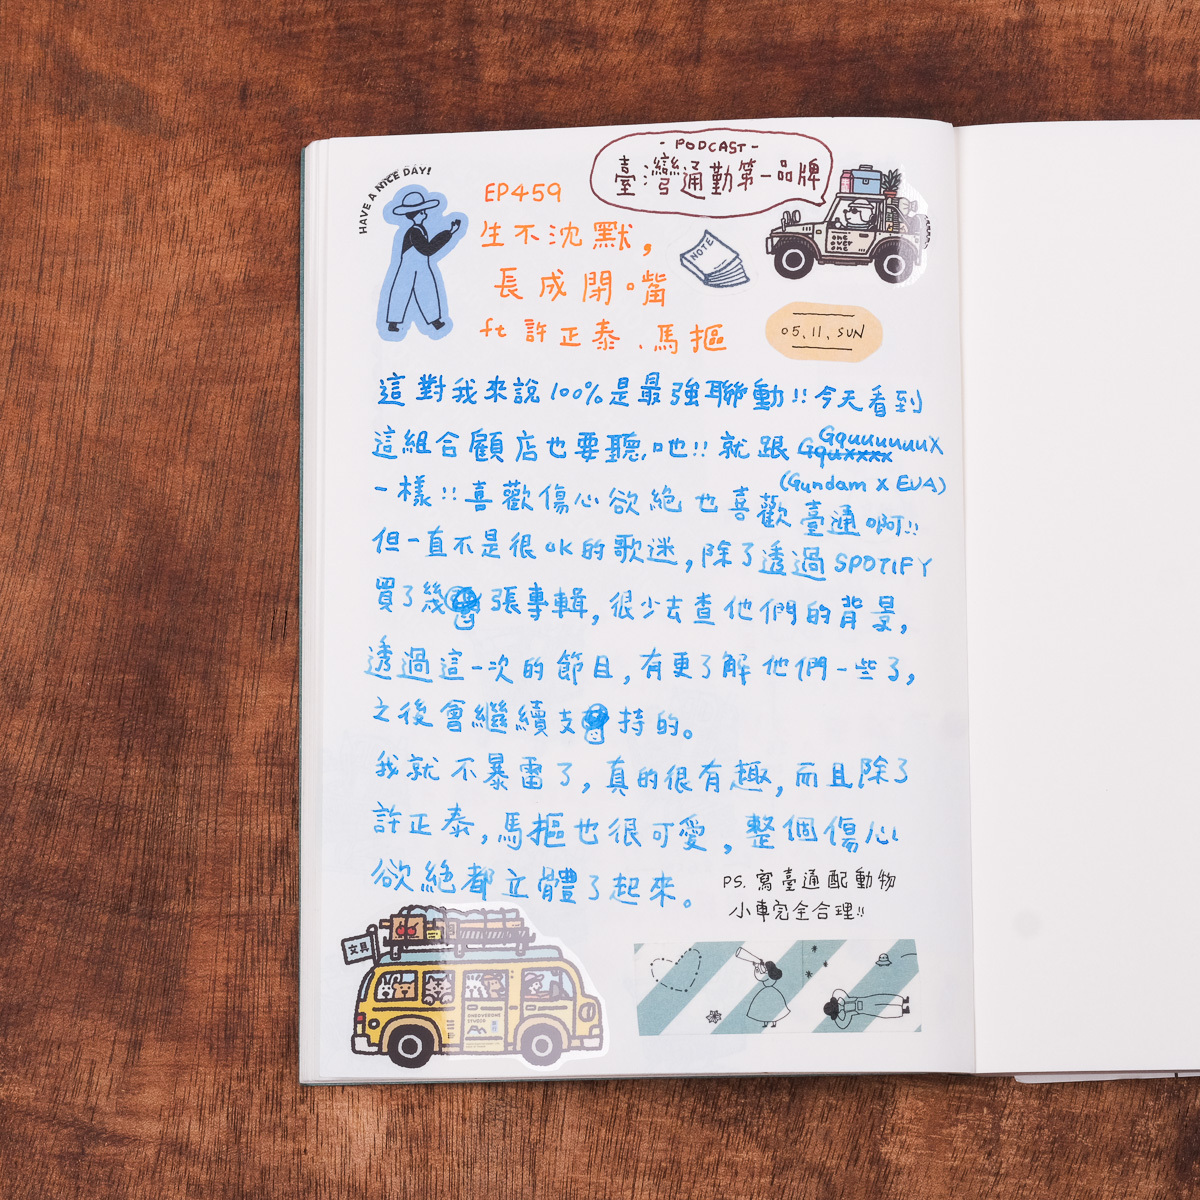 HAVE A NICE DAY!
- PODCAST -
臺灣通勤第一品牌
EP459
生不沈默,
長成閉嘴
ft 許正泰、馬摳
NOTE
one
over
one
05.11.SUN
這對我來說100%是最強聯動!!今天看到
這組合顧店也要聽吔!!就跟GquuuuuuX
(Gundam X EVA)
一樣!!喜歡傷心欲絕也喜歡臺通啊!!
但一直不是很OK的歌迷,除了透過SPOTIFY
買了幾張專輯,很少去查他們的背景,
透過這一次的節目,有更了解他們一些了,
之後會繼續支持的。
我就不暴雷了,真的很有趣,而且除了
許正泰,馬摳也很可愛,整個傷心
欲絕都立體了起來。
PS. 寫臺通配動物
小車完全合理!!
文具
ONEOVERONE
STUDIO